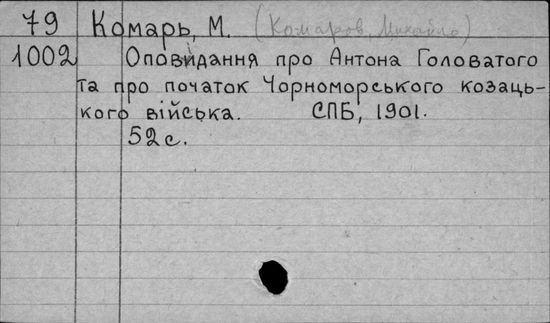 79 Комарь, М. (Комаров, Михайло)
1002 Оповідання про Антона Головатого
та про початок Чорноморського козаць-
кого війська. СПБ, 1901.
52 с.